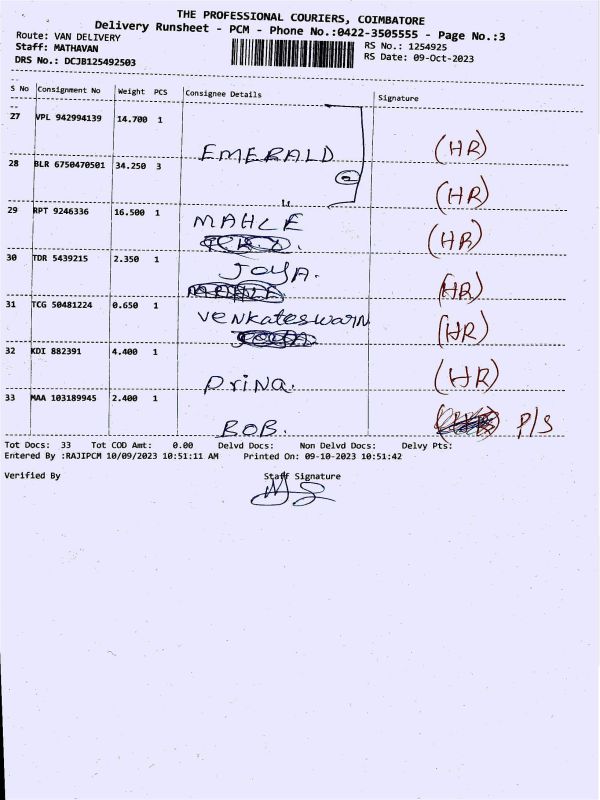 THE PROFESSIONAL COURIERS, COIMBATORE
Delivery Runsheet - PCM - Phone No.:0422-3505555 - Page No.:3
Route: VAN DELIVERY RS No.: 1254925
Staff: MATHAVAN RS Date: 09-Oct-2023
DRS No.: DCJB125492503
S No Consignment No Weight PCS Consignee Details Signature
27 VPL 942994139 14.700 1
EMERALD (HR)
28 BLR 6750470501 34.250 3
(HR)
29 RPT 9246336 16.500 1 MAHLE (HR)
30 TDR 5439215 2.350 1 JOYA. (HR)
31 TCG 50481224 0.650 1 VENKATESWARN (HR)
32 KDI 882391 4.400 1
PRiNa. (HR)
33 MAA 103189945 2.400 1
BOB. P/S
Tot Docs: 33 Tot COD Amt: 0.00 Delvd Docs: Non Delvd Docs: Delvy Pts:
Entered By :RAJIPCM 10/09/2023 10:51:11 AM Printed On: 09-10-2023 10:51:42
Verified By Staff Signature